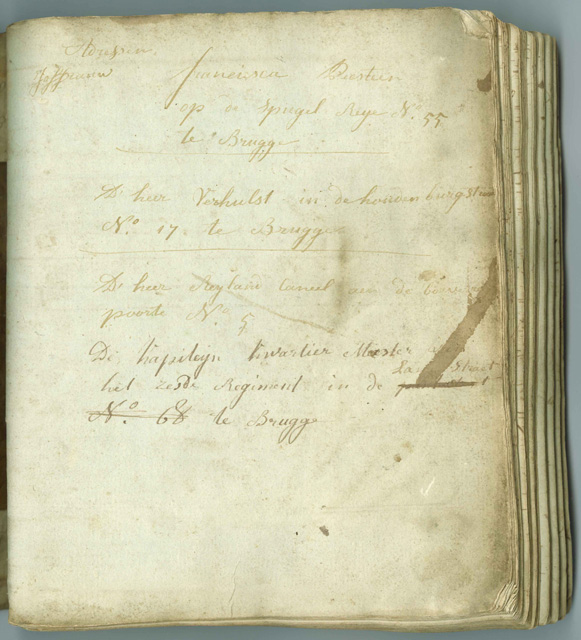 Adressen
Joffrouw
op de Spiegel Reye N.º 55
te Brugge
D'heer Verhulst in de houdenburgstraet
N.º 17. te Brugge
D'heer Reyland Caneel aen de
poorte N.º 5
De kapiteyn kwartier Meester
het zesde Regiment in de Lane Straet
N.º 68 te Brugge